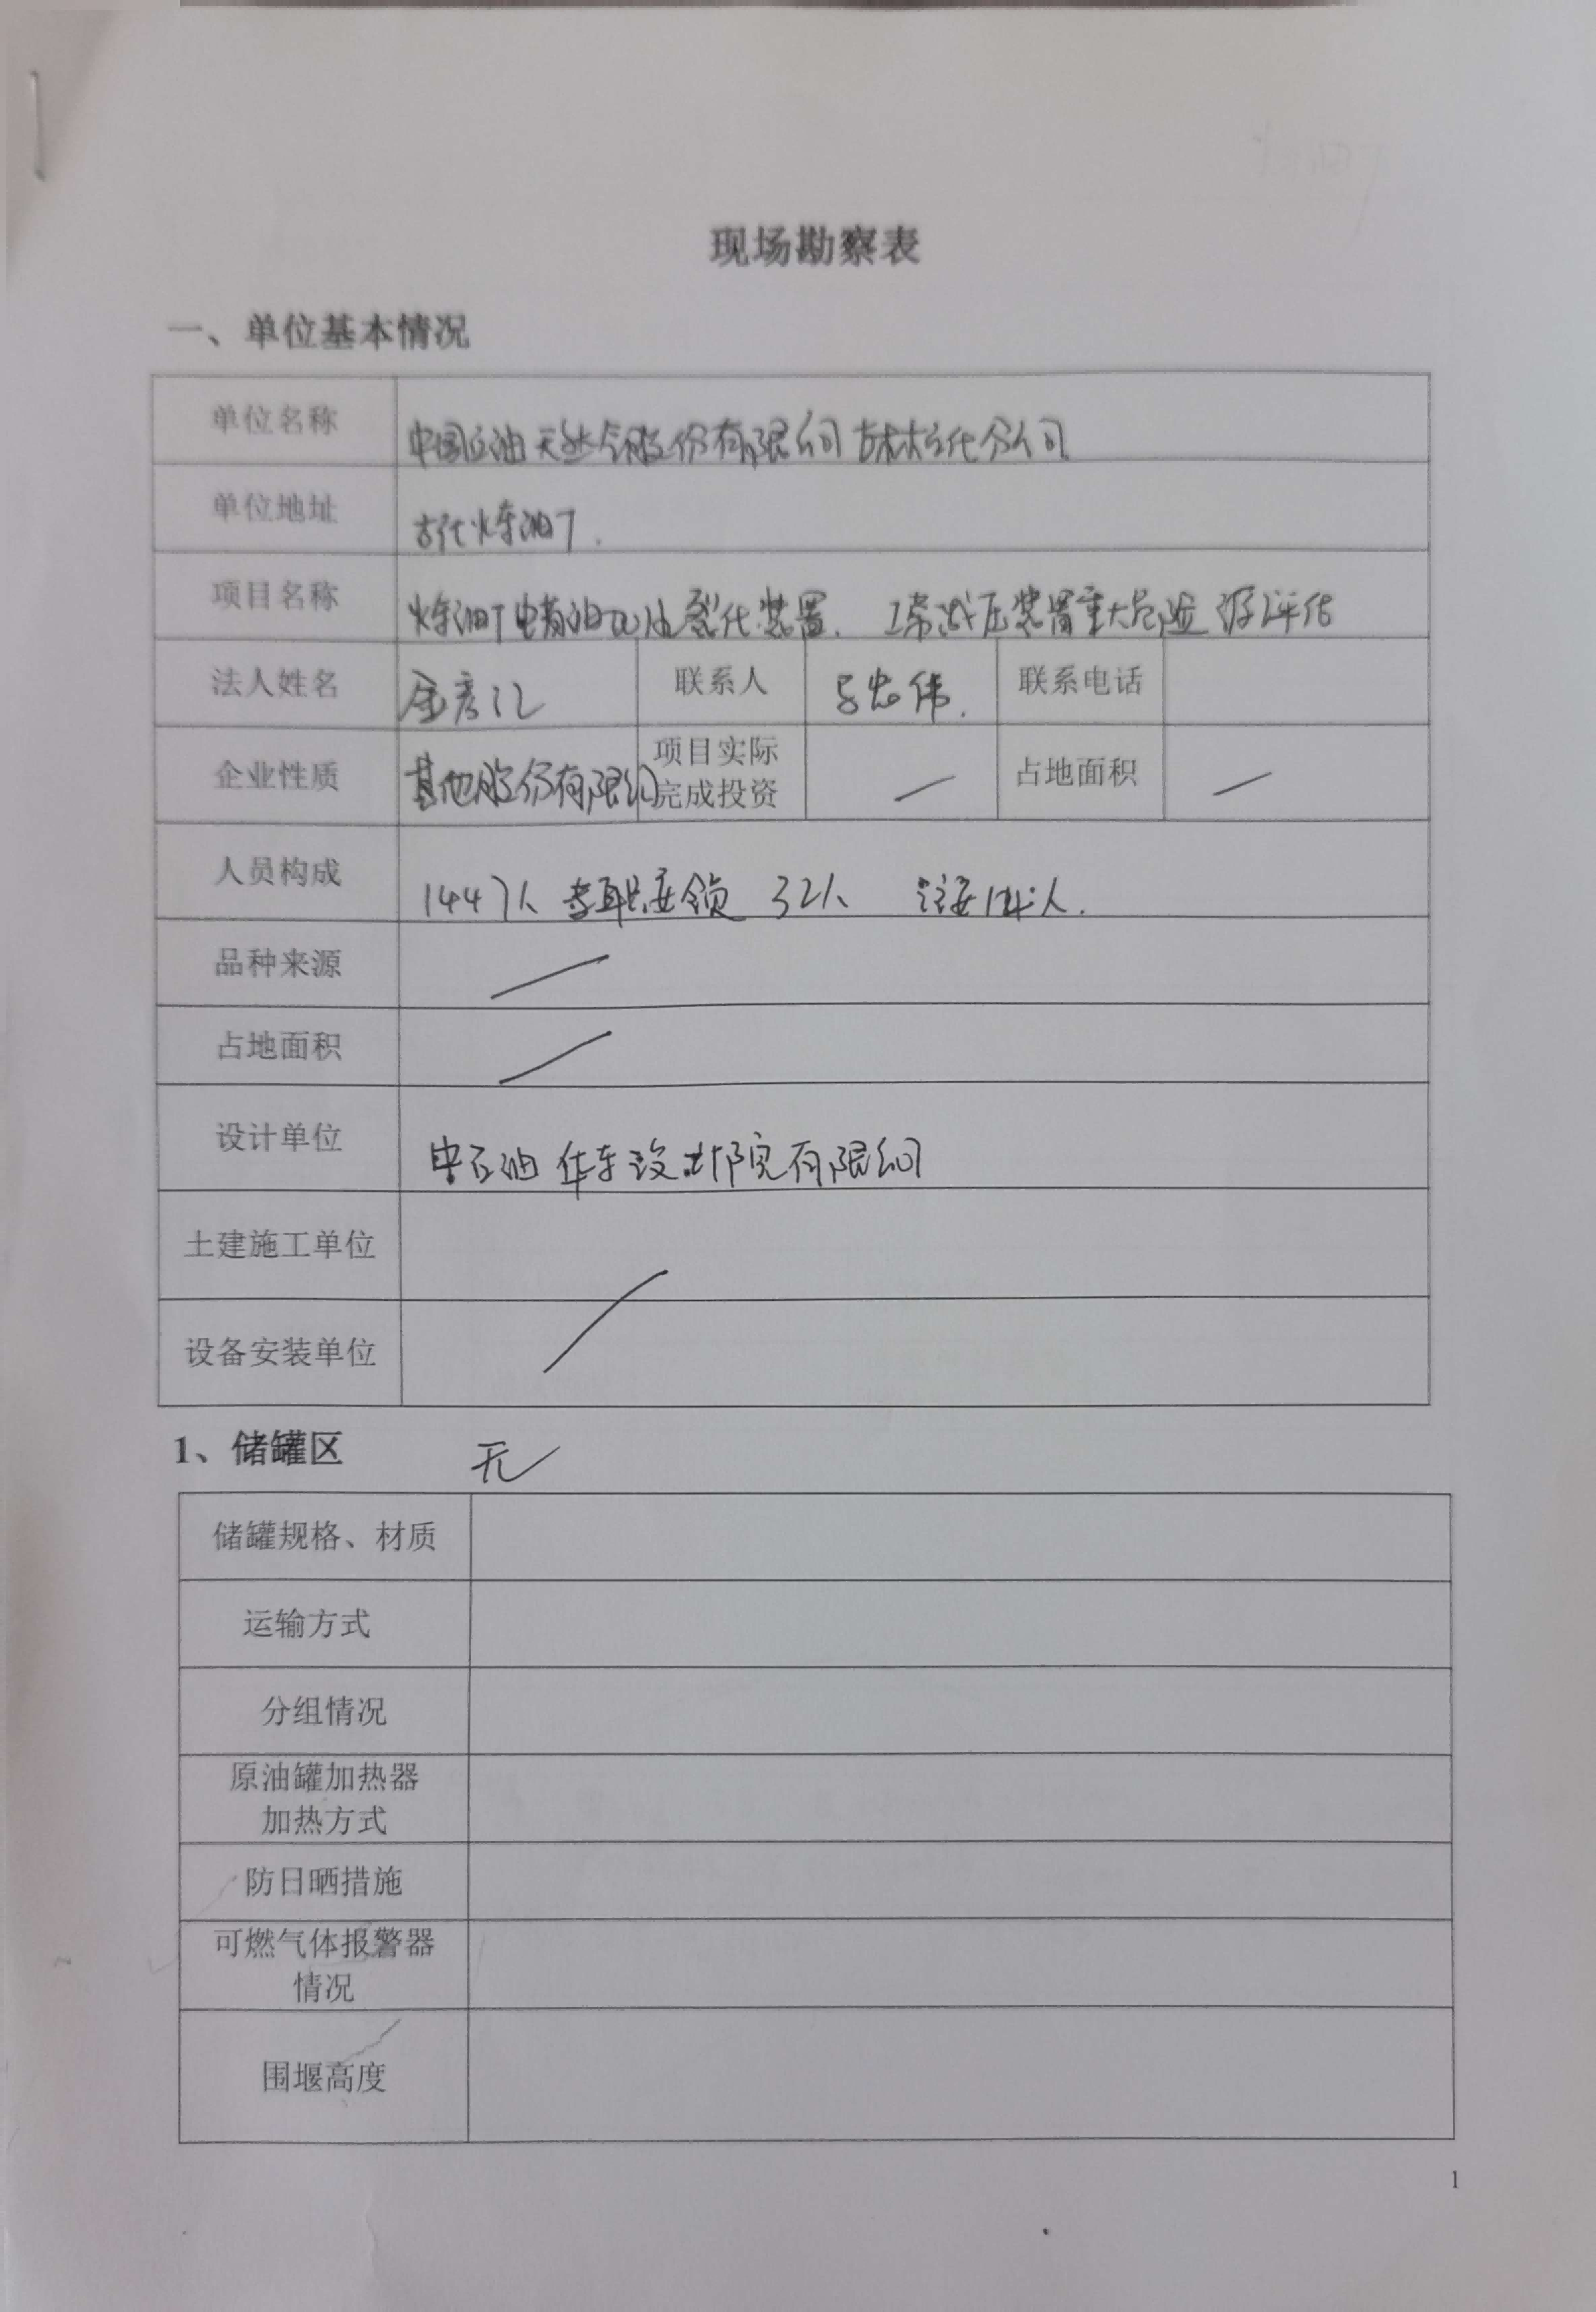 现场勘察表
一、单位基本情况
单位名称 中国石油天然气股份有限公司吉林石化分公司
单位地址 吉化炼油厂.
项目名称 炼油厂 油 裂化装置、 常减压装置重大危险源评估
法人姓名 金彦江 联系人 忠伟. 联系电话
企业性质 其他股份有限公司 项目实际完成投资 / 占地面积 /
人员构成 1447人 专职安全员 32人 注安 人.
品种来源 /
占地面积 /
设计单位 中石油华东设计院有限公司
土建施工单位 /
设备安装单位
1、储罐区 无
储罐规格、材质
运输方式
分组情况
原油罐加热器
加热方式
防日晒措施
可燃气体报警器
情况
围堰高度
1